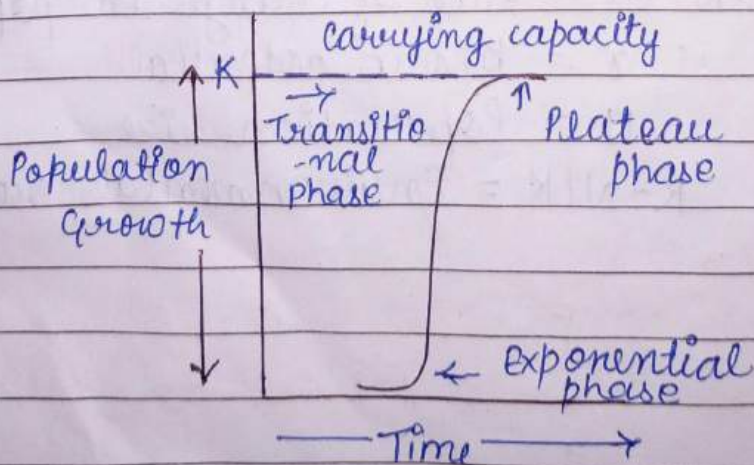 carrying capacity
K
Transitio
-nal
phase
Plateau
phase
Population
Growth
Exponential
phase
Time